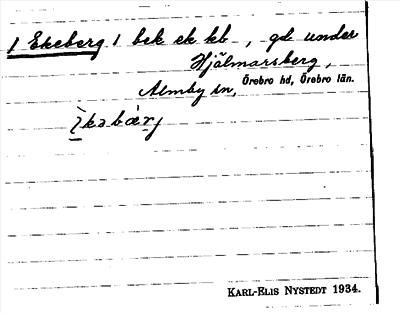 1 Ekeberg 1 bek ek kb, gd under
Hjälmarsberg,
Almby sn, Örebro hd, Örebro län.
KARL-ELIS NYSTEDT 1934.